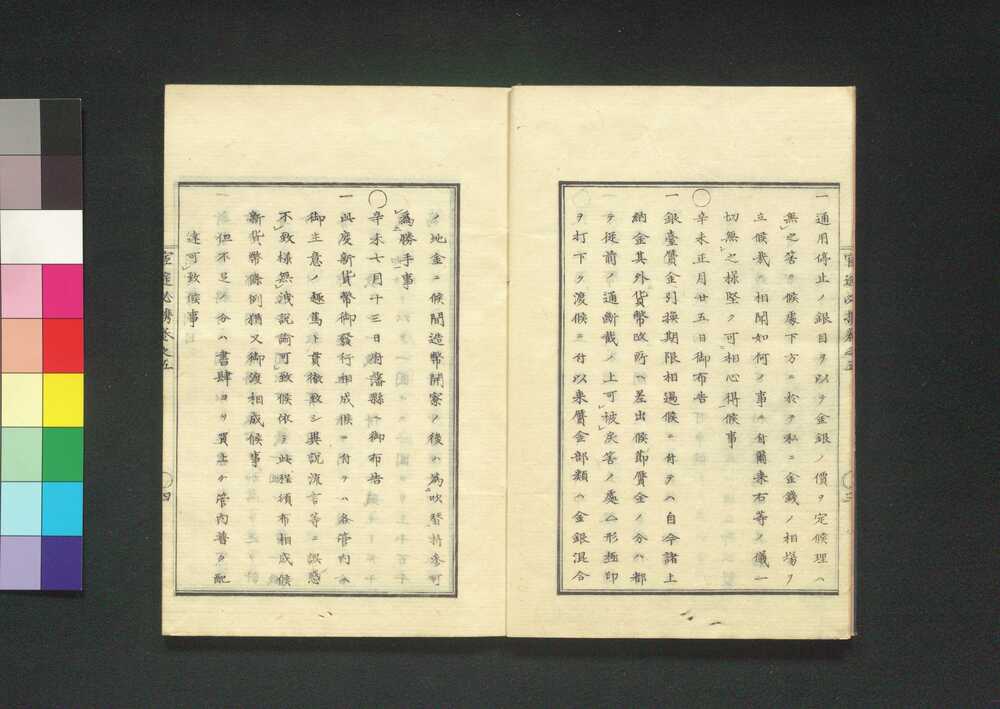 一通用停止ノ銀目ヲ以テ金銀ノ價ヲ定候理ハ
無之筈ニ候處下方ニ於テ私ニ金錢ノ相場ヲ
立候哉ニ相聞如何ノ事ニ付爾来右等ノ儀一
切無之様堅ク可相心得候事
○
辛未正月廿五日御布告
一銀臺贋金引換期限相過候ニ付テハ自今諸上
納金其外貨幣改所ヘ差出候節贋金ノ分ハ都
テ從前ノ通断截ノ上可被戻筈ノ處△形極印
ヲ打下ケ渡候ニ付以来贋金部類ハ金銀混合
ノ地金ニ候間造幣開寮ノ後ハ為吹替持参可
為勝手事
○
辛未七月十三日府藩縣ヘ御布告
一此度新貨幣御發行相成候ニ付テハ各管内ヘ
御主意ノ趣篤ト貫徹致シ異説流言等ニ誤惑
不致様無洩説諭可致候依テ此程頒布相成候
新貨幣條例猶又御渡相成候事
但不足ノ分ハ書肆ヨリ買上ケ管内普ク配
達可致候事
官途必携巻之五
四